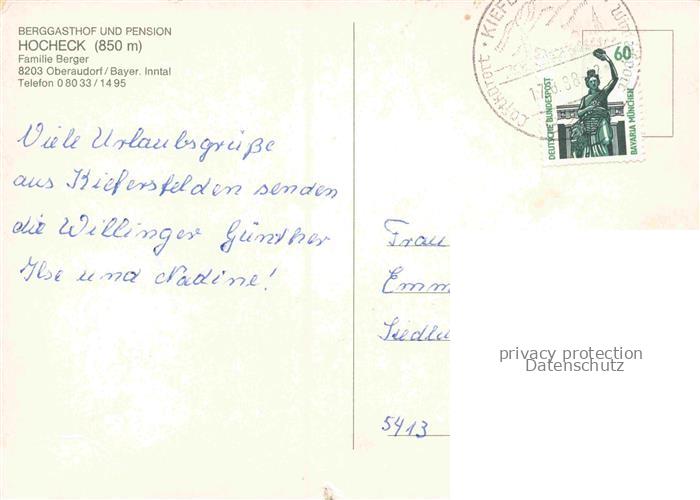 BERGGASTHOF UND PENSION
HOCHECK (850 m)
Familie Berger
8203 Oberaudorf/Bayer. Inntal
Telefon 0 80 33 / 14 95
Viele Urlaubsgrüße
aus Kiefersfelden senden
die Willinger Günther
Ilse und Nadine!
60
DEUTSCHE BUNDESPOST
BAVARIA MÜNCHEN
Frau
Emm
Siedlu
5413
privacy protection
Datenschutz